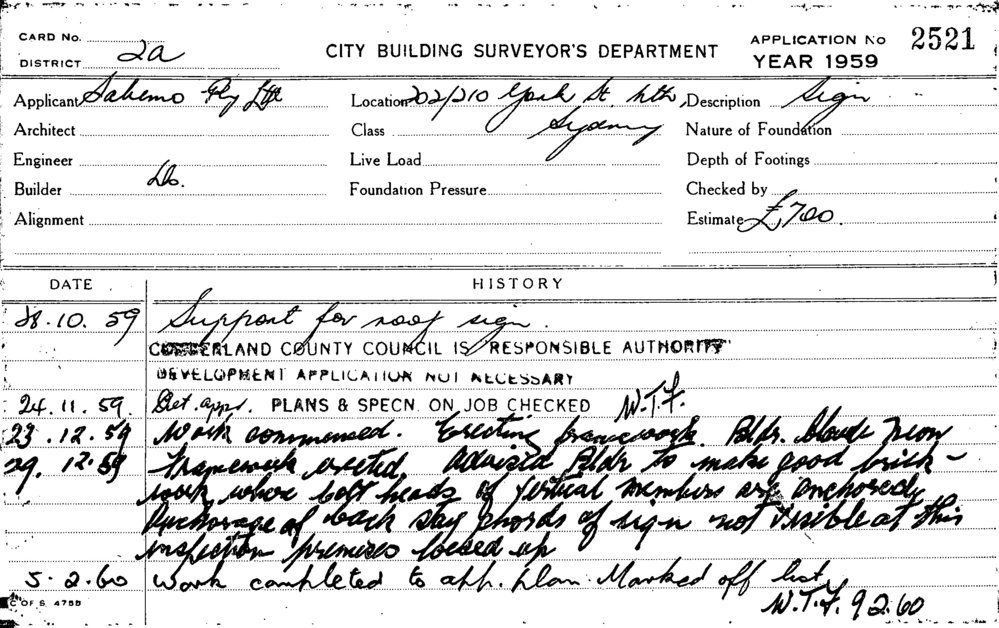 CARD No.
DISTRICT 2a
CITY BUILDING SURVEYOR'S DEPARTMENT
APPLICATION No 2521
YEAR 1959
Applicant Pty Ltd
Location 202/210 York St. Nth, Sydney
Description Sign
Architect
Class
Nature of Foundation
Engineer
Live Load
Depth of Footings
Builder Do.
Foundation Pressure
Checked by
Alignment
Estimate £700.
DATE
HISTORY
28.10.59 Support for roof sign.
CUMBERLAND COUNTY COUNCIL IS RESPONSIBLE AUTHORITY
DEVELOPMENT APPLICATION NOT NECESSARY
24.11.59. Let. appr. PLANS & SPECN. ON JOB CHECKED W.T.F.
23.12.59 Work commenced. Erecting framework. Bldr. Claude Neon
29.12.59 Framework erected. Advised Bldr to make good brick-
work where bolt heads of vertical members are anchored.
Anchorage of back stay chords of sign not visible at this
inspection premises locked up
5.2.60 Work completed to app. plan. Marked off list
W.T.F. 9 2.60
C OF S. 4755